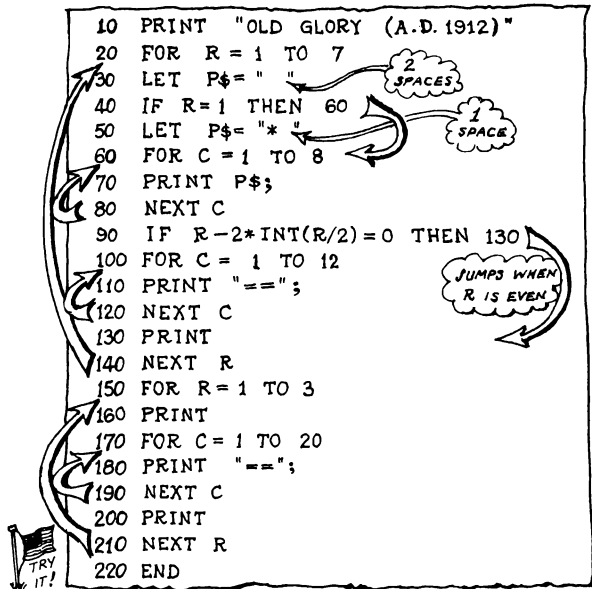 10 PRINT "OLD GLORY (A.D. 1912)"
20 FOR R = 1 TO 7
30 LET P$= "  "
2 SPACES
40 IF R=1 THEN 60
50 LET P$= "* "
1 SPACE
60 FOR C = 1 TO 8
70 PRINT P$;
80 NEXT C
90 IF R-2*INT(R/2)=0 THEN 130
100 FOR C = 1 TO 12
110 PRINT "==";
120 NEXT C
JUMPS WHEN
R IS EVEN
130 PRINT
140 NEXT R
150 FOR R=1 TO 3
160 PRINT
170 FOR C=1 TO 20
180 PRINT "==";
190 NEXT C
200 PRINT
210 NEXT R
220 END
TRY
IT!